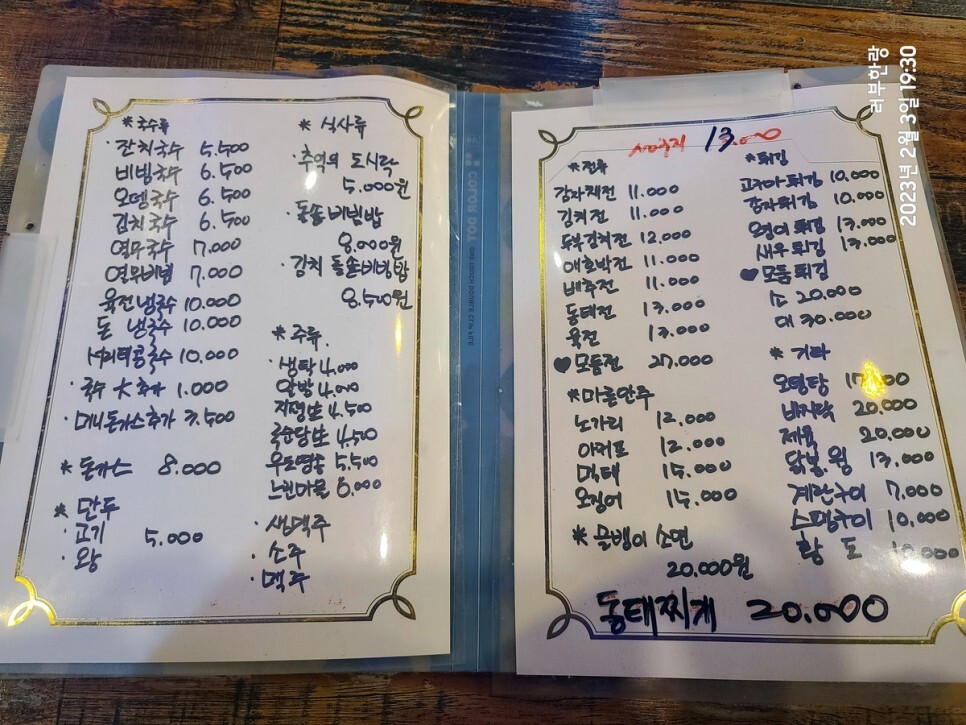 * 국수류
· 잔치국수 5.500
비빔국수 6.500
오뎅국수 6.500
김치국수 6.500
열무국수 7.000
열무비빔 7.000
육전냉국수 10.000
돈 냉국수 10.000
서리태콩국수 10.000
· 국수 大 추가 1.000
· 미니돈가스추가 3.500
* 돈가스 8.000
* 만두
· 고기
5.000
· 왕
* 식사류
· 추억의 도시락
5.000원
· 돌솥비빔밥
8.000원
· 김치 돌솥비빔밥
8.500원
* 주류.
· 생탁 4.000
알밤 4.000
지평生 4.500
국순당生 4.500
우도땅콩 5.500
느린마을 6.000
· 생맥주
· 소주
· 맥주
COLOR DOT
13.000
* 전류
감자채전 11.000
김치전 11.000
두부김치전 12.000
애호박전 11.000
배추전 11.000
동태전 13.000
육전 13.000
♥ 모듬전 27.000
* 마른안주
노가리 12.000
아귀포 12.000
먹태 15.000
오징어 15.000
* 골뱅이 소면
20.000원
* 튀김
고구마튀김 10.000
감자튀김 10.000
오징어튀김 13.000
새우튀김 13.000
♥ 모둠튀김
소 20.000
대 30.000
* 기타
오뎅탕
바지락 20.000
제육 20.000
닭발, 윙 13.000
계란구이 7.000
스팸구이 10.000
황도 10.000
동태찌개 20.000
러부한랑
2023년 2월 3일 19:30